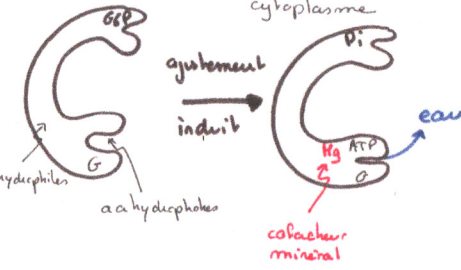 cytoplasme
G6P
Pi
ajustement
induit
eau
Mg
ATP
G
G
hydrophiles
aa hydrophobes
cofacteur
minéral